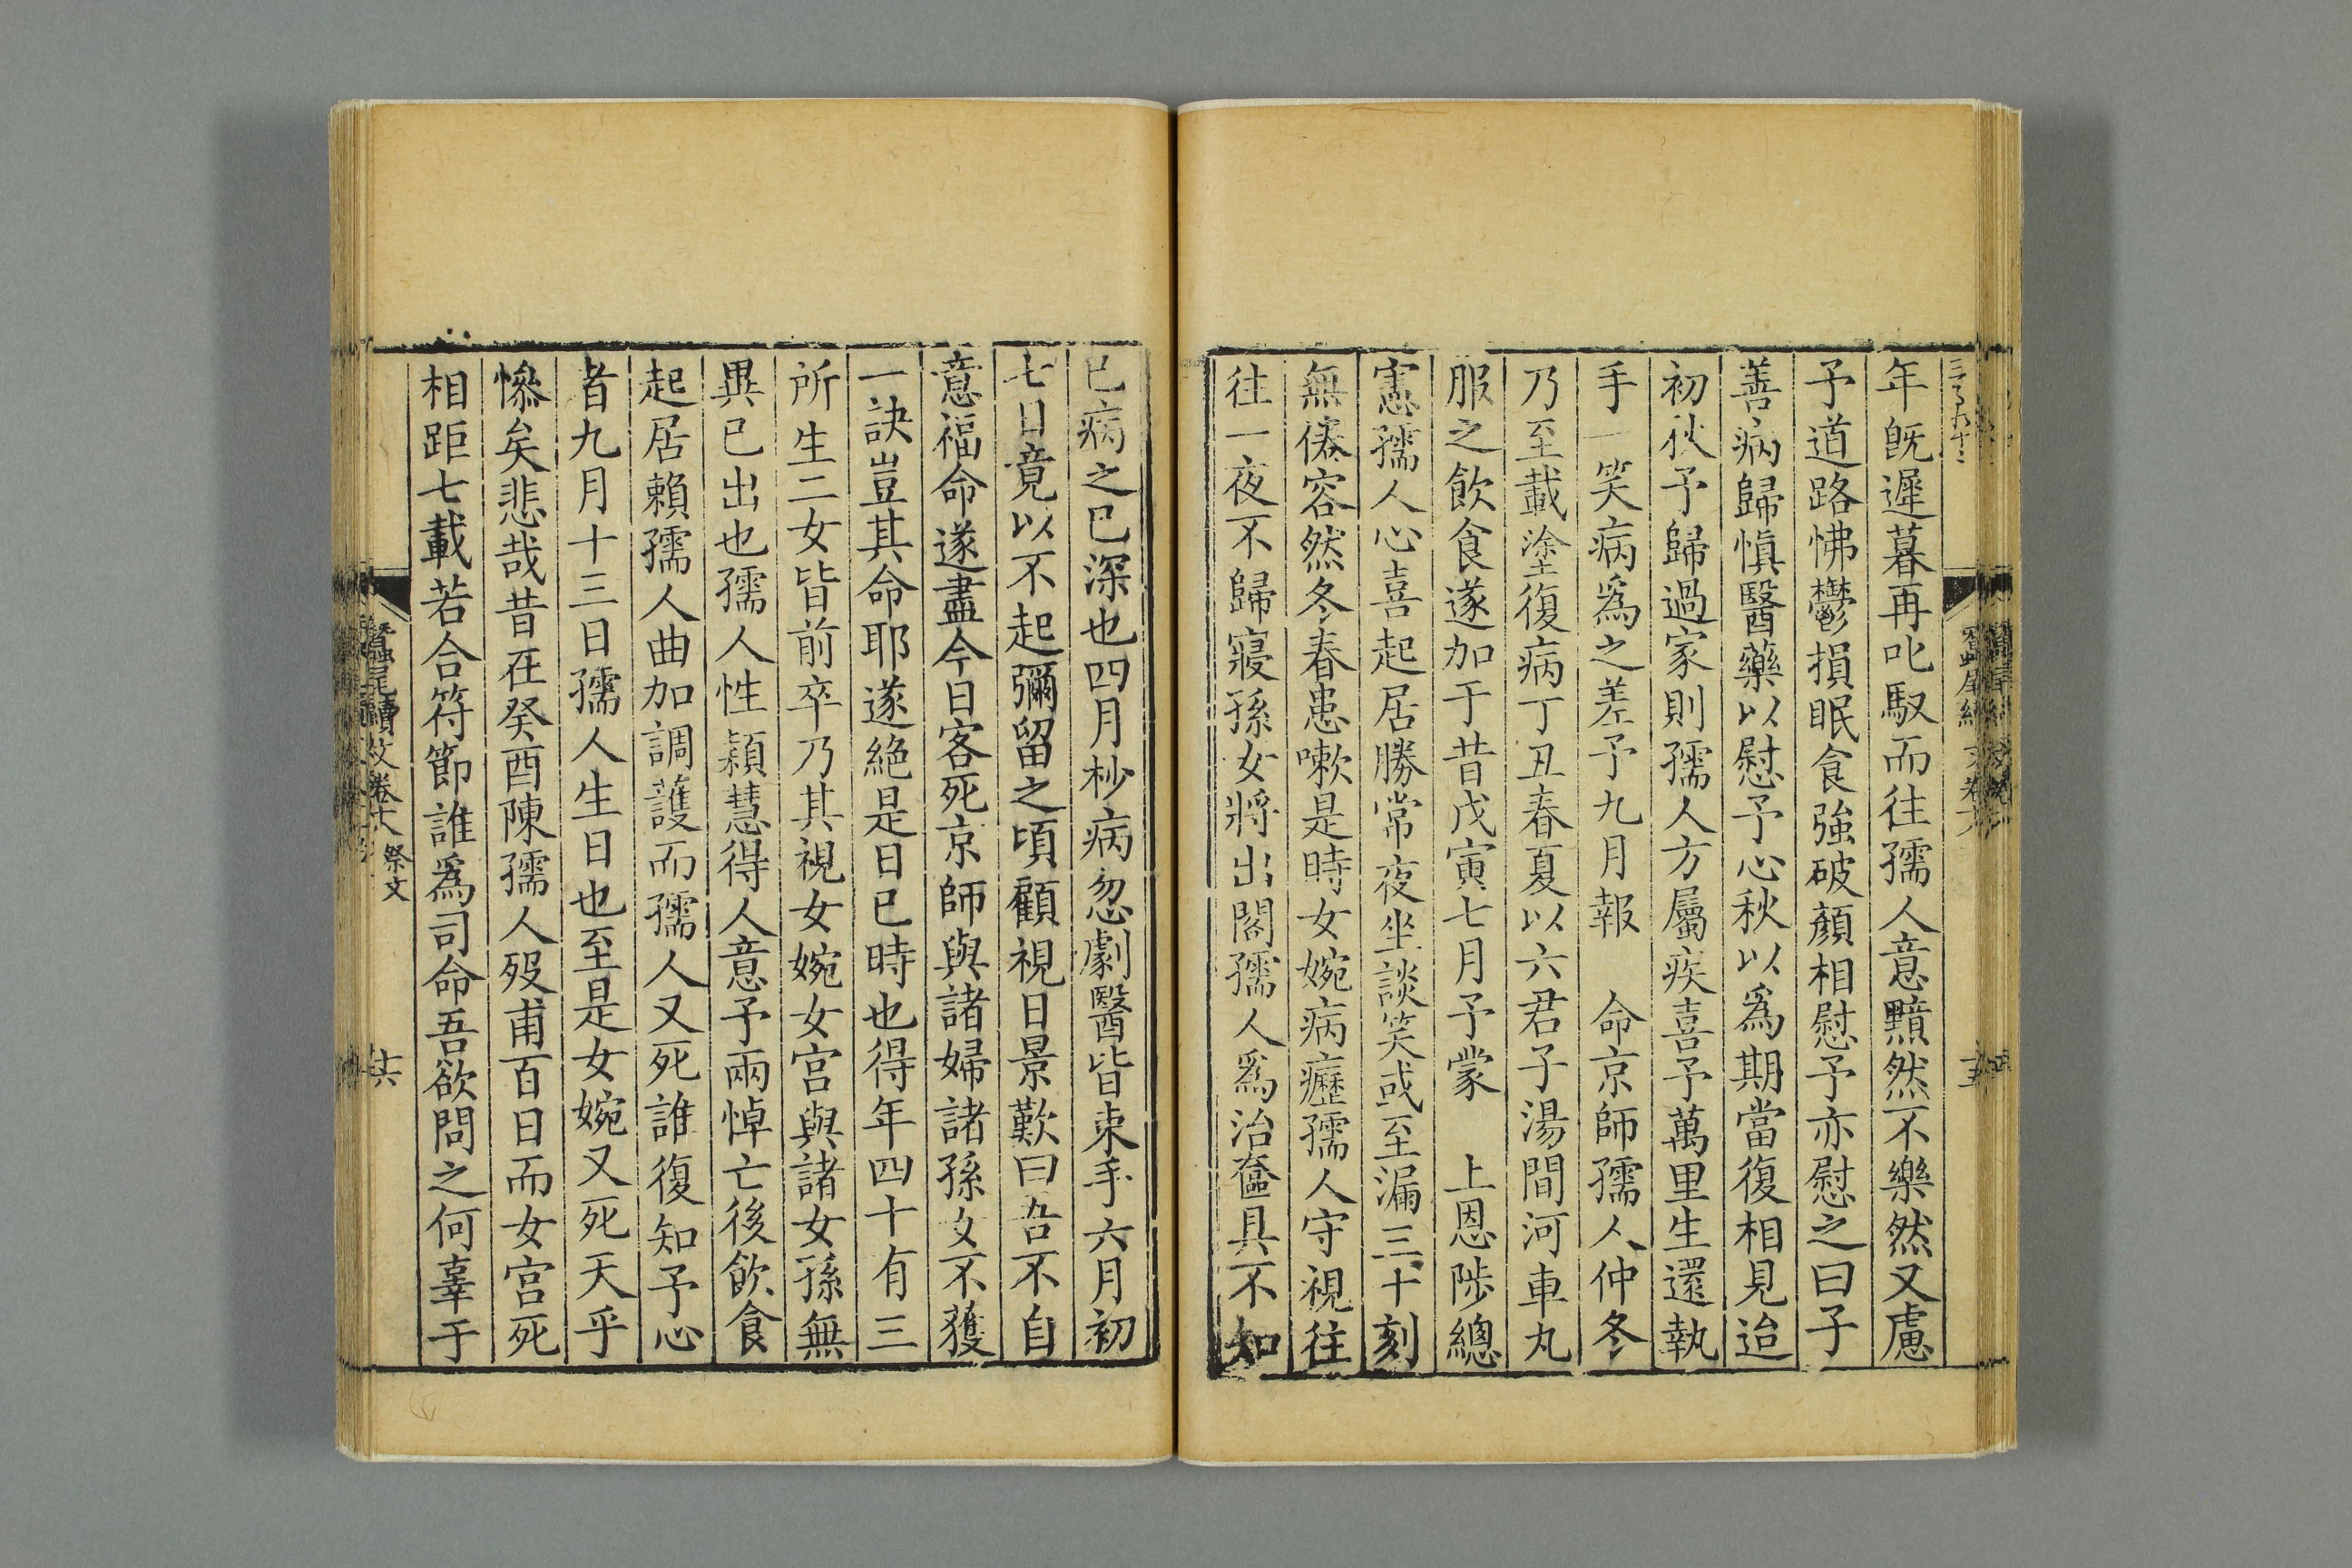 年旣遲暮再叱馭而往孺人意黯然不樂然又慮
予道路怫鬱損眠食強破顏相慰予亦慰之曰子
善病歸慎醫藥以慰予心秋以爲期當復相見迨
初秋予歸過家則孺人方屬疾喜予萬里生還執
手一笑病爲之差予九月報　命京師孺人仲冬
乃至載塗復病丁丑春夏以六君子湯間河車丸
服之飮食遂加于昔戊寅七月予蒙　上恩陟總
憲孺人心喜起居勝常夜坐談笑或至漏三十刻
無倦容然冬春患嗽是時女婉病癧孺人守視往
往一夜不歸寢孫女將出閣孺人爲治奩具不知
已病之已深也四月杪病忽劇醫皆束手六月初
七日竟以不起彌留之頃顧視日景歎曰吾不自
意福命遂盡今日客死京師與諸婦諸孫女不獲
一訣豈其命耶遂絶是日巳時也得年四十有三
所生二女皆前卒乃其視女婉女宮與諸女孫無
異已出也孺人性穎慧得人意予兩悼亡後飮食
起居賴孺人曲加調護而孺人又死誰復知予心
者九月十三日孺人生日也至是女婉又死天乎
慘矣悲哉昔在癸酉陳孺人歿甫百日而女宮死
相距七載若合符節誰爲司命吾欲問之何辜于
蠶尾續文卷十八　祭文
十六